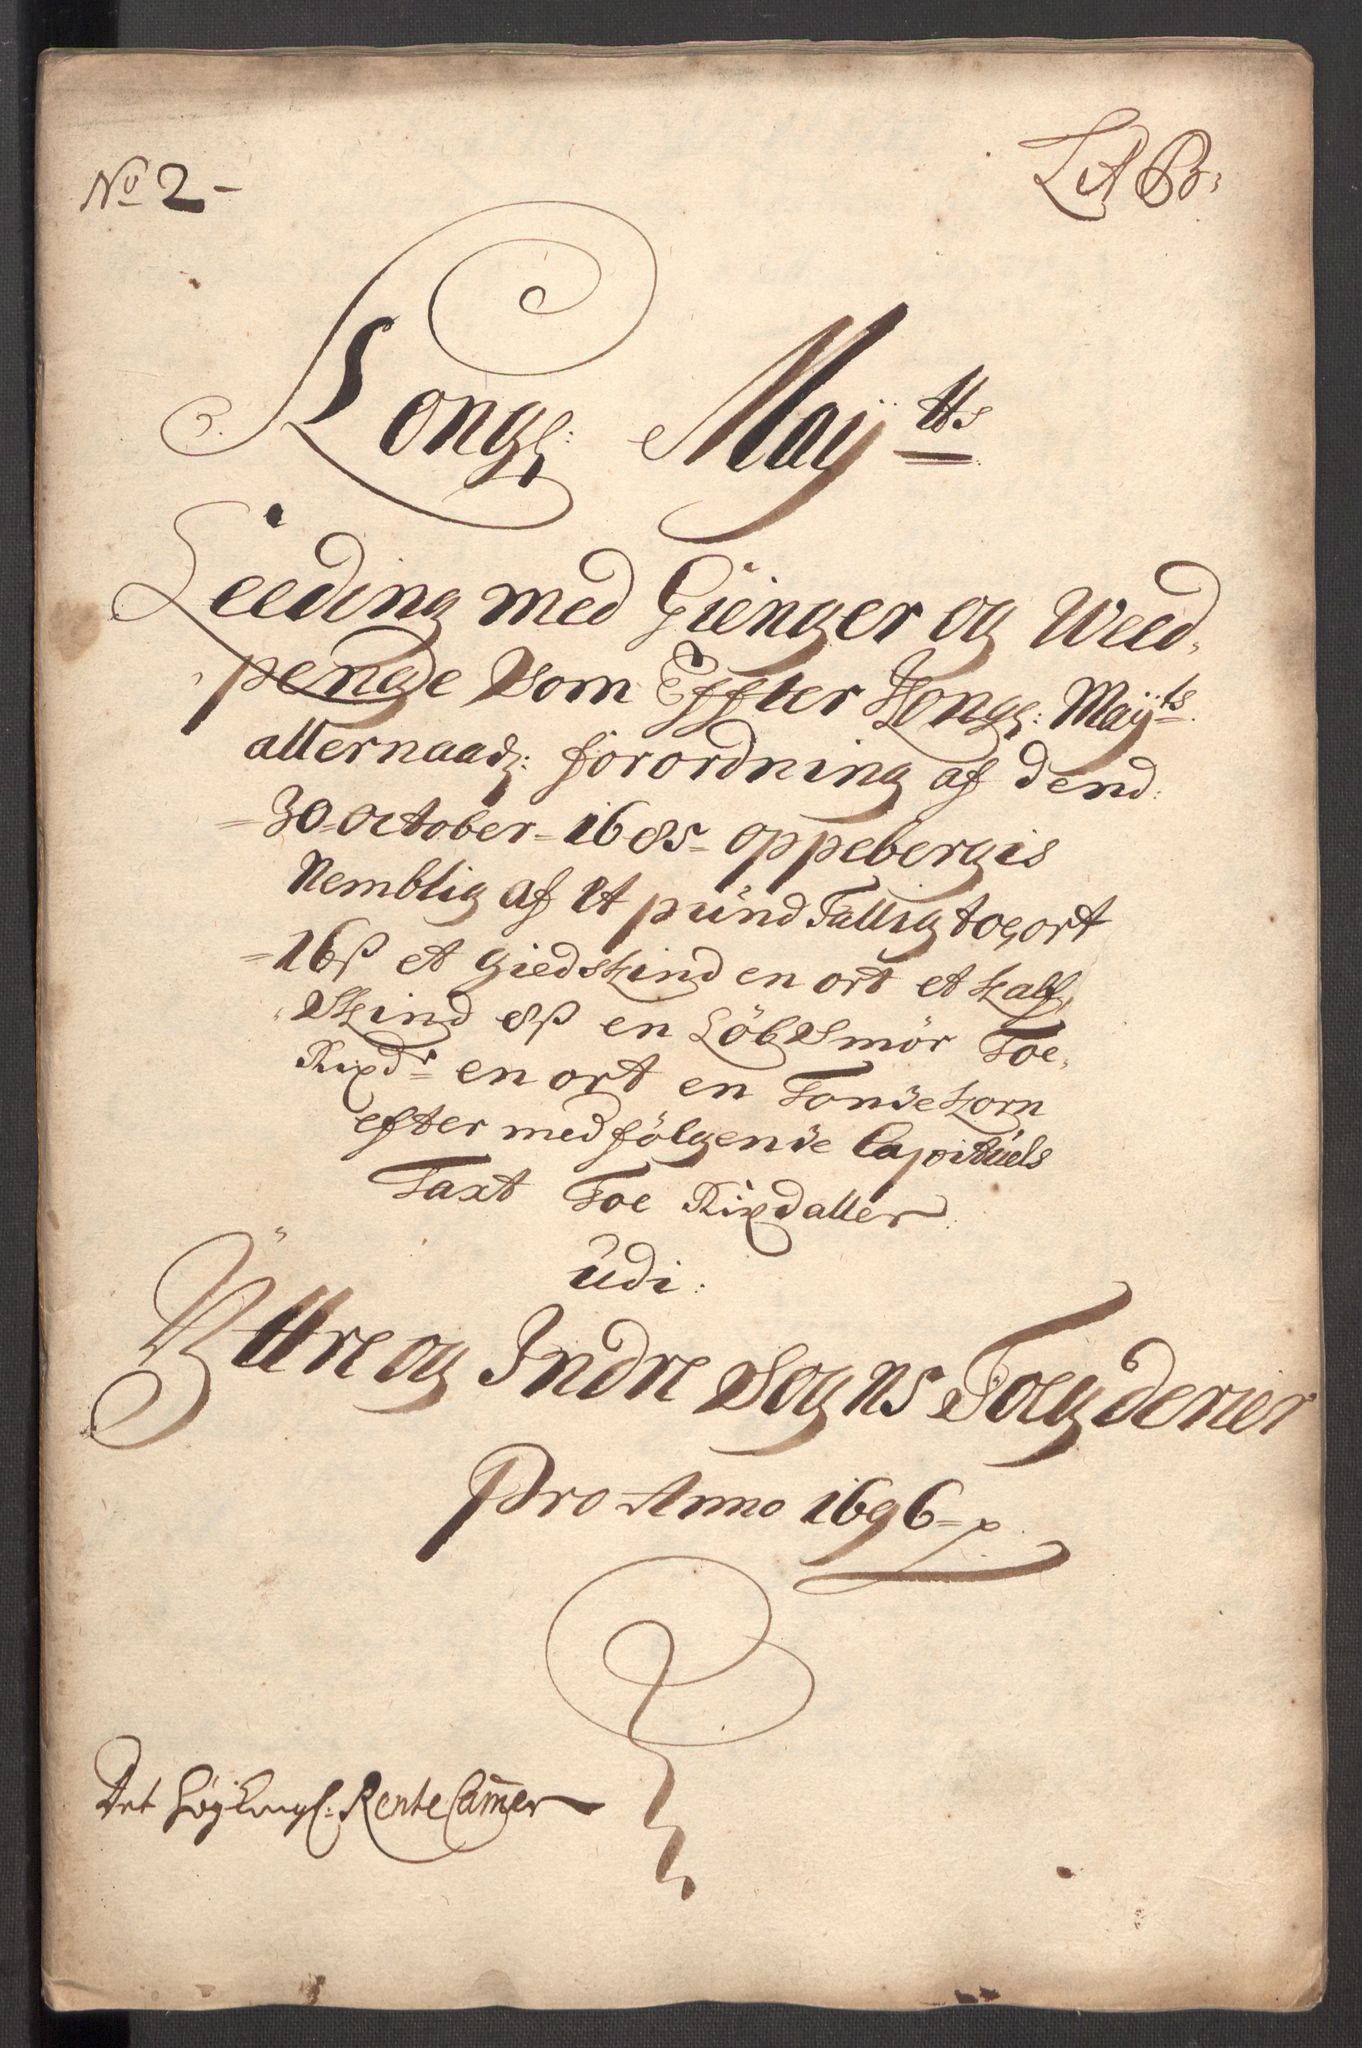 No 2-
Lit B:
Kongl: Maÿtts
Leeding med Gienger og Weed,
penge som Effter Kongl: Maÿts
allernaadg: forordning af dend:
30 October 1685 oppebergis
Nemblig af Et pünd Tallig to ort
16 ß et giedskind en ort et kalf,
skind 8 ß en Löb Smör Toe,
Rixdr en ort en Tonde korn
efter medfölgende Capituels
Taxt Toe Rixdaller
Udi:
Ÿttre og Indre Sogns Fogderier
Pro Anno 1696
Det höÿ Kongl: Rente Cammer